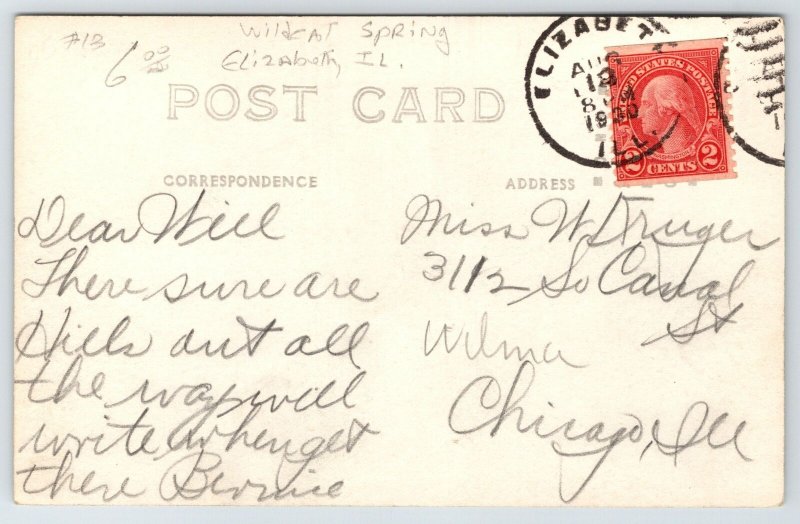 #13
6.00
Wildcat Spring
Elizabeth, IL.
POST CARD
ELIZABET
AUG
12
1930
ILL.
UNITED STATES POSTAGE
2 CENTS 2
CORRESPONDENCE
ADDRESS
Dear Will
There sure are
Hills out all
the way will
write when get
there Bernice
Miss W Kruger
3112 So Canal
St
Wilma
Chicago, Ill